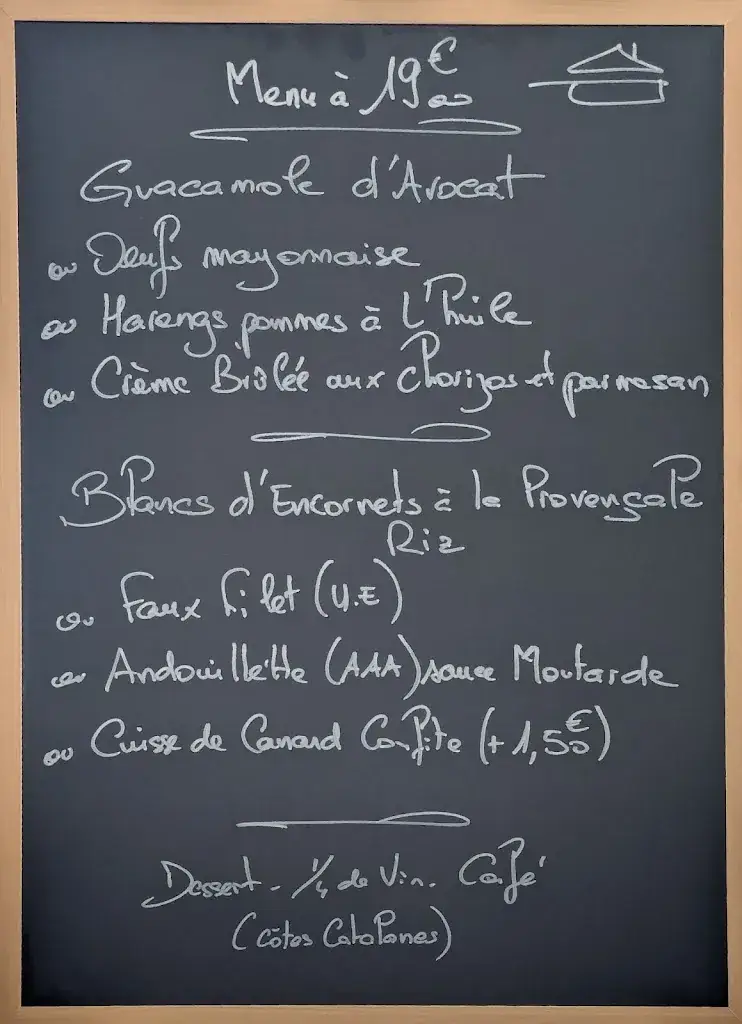 Menu à 19€00
Guacamole d'Avocat
ou Oeufs mayonnaise
ou Harengs pommes à L'huile
ou Crème Brûlée aux chorizos et parmesan
Blancs d'Encornets à la Provençale
Riz
ou Faux filet (U.E)
ou Andouillette (AAA) sauce Moutarde
ou Cuisse de Canard Confite (+ 1,50€)
Dessert - 1/4 de Vin - Café
(Côtes Catalanes)